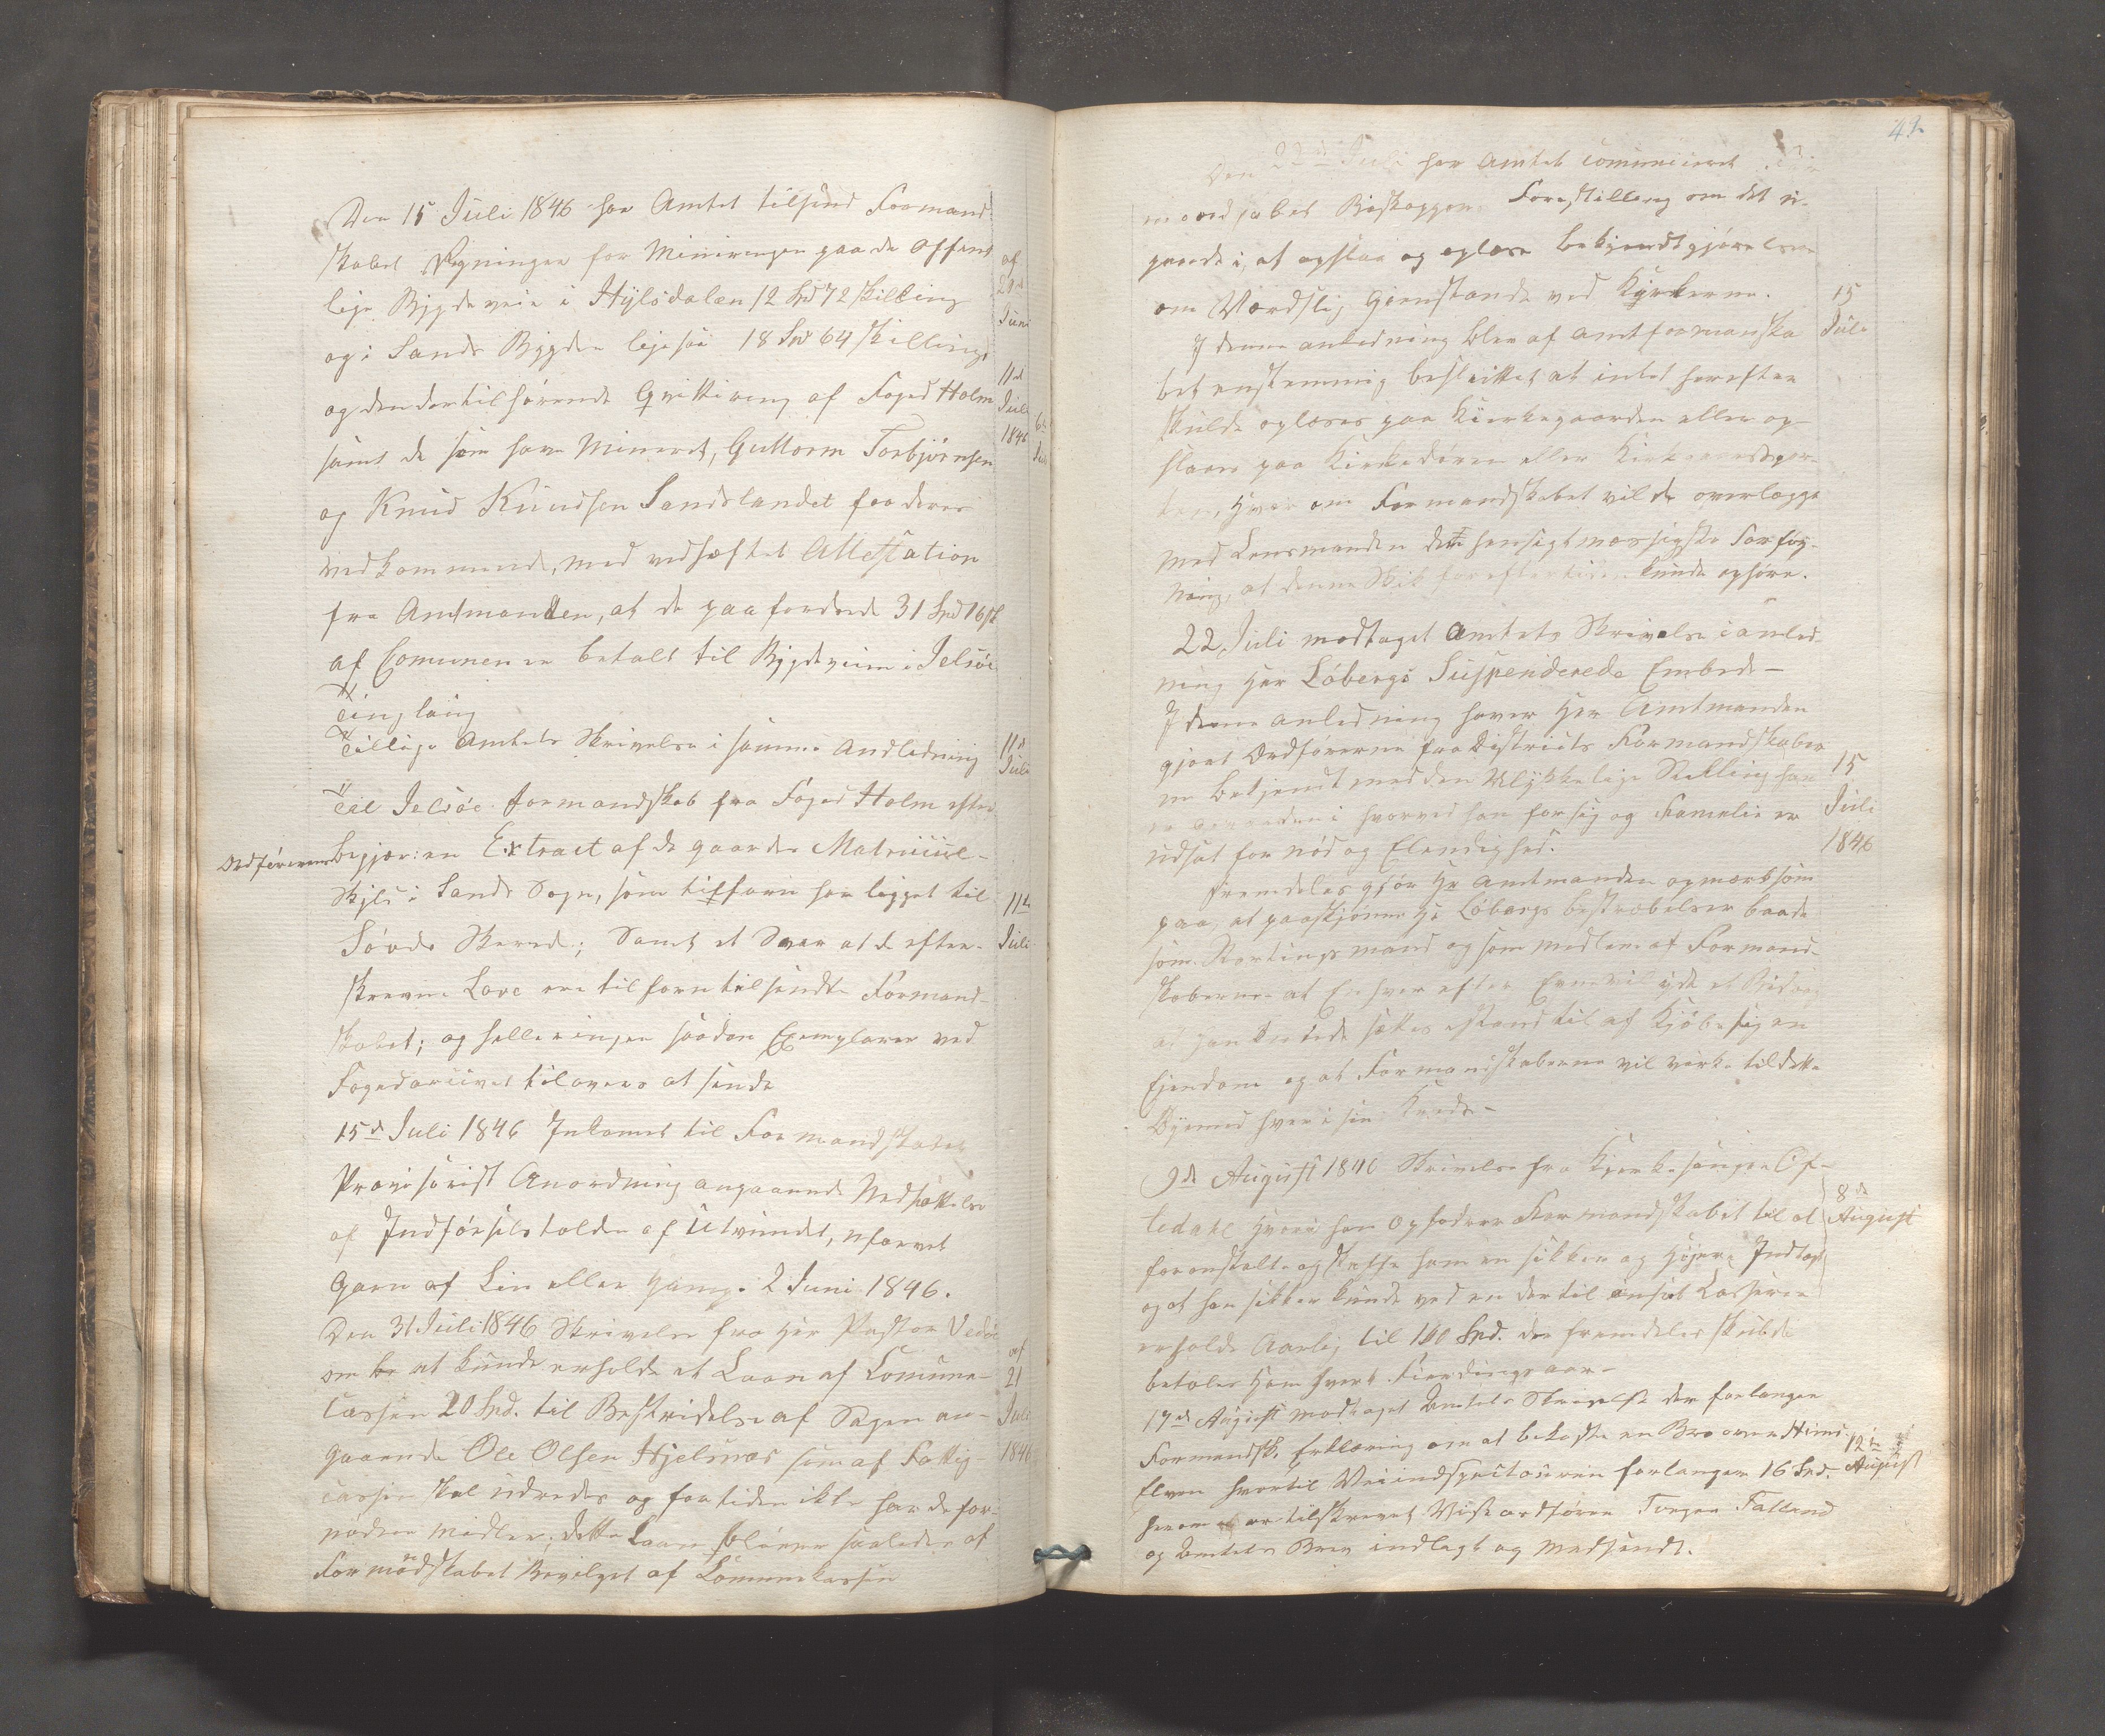 Den 15 Juli 1846 har Amtet tilsend Formand
skabet Regningen for Mineringen paa de offent
lige Bygdeveie i Hylsdalen 12 Spd 72 Skilling
og i Sands Bygden ligesaa 18 Spd 64 Skilling
og den dertil hørende Qvittering af Foged Holm
samt de som have Mineret, Guttorm Torbjørnsen
og Knud Knudsen Sandslandet for deres
vedkommende, med vedhæftet Attestation
fra Amtmanden, at de paafordrede 31 Spd 16 sk
af Comunen er betalt til Bygdeveien i Jelsøe
Tinglaug
Tillige Amtets Skrivelse i samme Andledning
Til Jelsøe Formandskab fra Foged Holm efter
Ordførerens Begjær: en Extract af de gaardes Matricul-
Skyld i Sands Sogn, som tilforn har ligget til
Søvde Skerred; Samt et Svar at de efter-
skrevne Love ere tilforn tilsendte Formand-
skabet; og heller ingen saadan Exemplarer ved
Fogedarcivet tilovers at sende
15d Juli 1846 Inkomet til Formandskabet
Provisorisk Anordning angaaende Nedsættelse
af Indførselstolden af Utvundet, ufarvet
Garn af Lin eller Hamp. 2 Juni 1846.
Den 31 Juli 1846 Skrivelse fra Her Pastor Vedøe
om at kunde erholde et Laan af Comune-
Cassen 20 Spd. til Bestridelse af Sagen an-
gaaende Ole Olsen Hjelsnæs som af Fattig-
cassen skal udredes og for tiden ikke har de for-
nødne Midler; dette Laan bliver saaledes af
Formandskabet Bevilget af Comunekassen
af
2den
Juni
11d
Juli
1846
11d
Juli
11te
Juli
af
21
Juli
1846
42
Den 22de Juli har Amtet comuniceret For
mandskabet Biskoppens Forestilling om det u-
passende i, at opslaa og oplæse bekjendtgjørelser
om Værdslig Gjenstande ved Kyrkerne.
I denne anledning blev af amtformanska
bet enstemmig besluttet at intet herefter
skulde oplæses paa Kirkegaarden eller op-
slaaes paa Kirkedøren eller
hver om Formandskabet vilde overlægge
med Lensmanden den hensigtmæssigste Forføy-
ning, at denne Skik for eftertiden kunde ophøre.
15
Juli
22 Juli modtaget Amtets Skrivelse i anled-
ning Her Løbergs Suspenderede Embede-
I denne anledning haver Her Amtmanden
gjort Ordførerne for Districts Formandskaber
ne bekjendt med den Ulykkelige Stilling han
er i hvorved han for sig og Familie er
udsat for nød og Elendighed.
15
Juli
1846
Fremdeles gjør Hr Amtmanden opmærksom
paa, at paaskjønne Hr Løbergs bestræbelser baade
som Stortingsmand og som medlem af Formand-
skaberne at Enhver efter Evne vil yde et Bidrag
at han sættes istand til at Kjøbe sig en
Ejendom og at Formandskaberne vil virke til dette
Øyemed hver i sin Kreds-
9de August 1846 Skrivelse fra Kjerkesanger Of-
tedahl hvori han opfodrer Formandskabet til at
foranstalte og skaffe ham en sikker og høyere Indtægt
og at han sikker kunde ved en dertil ansat Casserer
erholde Aarlig til 100 Spd. der fremdeles skulde
betales Ham hvert Fierdingsaar-
8de
August
17de August modtaget Amtets Skrivelse der forlanger
Formandsk. Erklæring om at bekoste en Bro over Hiims
Elven hvortil Veiindspecteuren forlanger 16 Spd.
herom er tilskrevet Viseordfører Torger Fatland
og Amtets Brev indlagt og medsendt.
12te
August